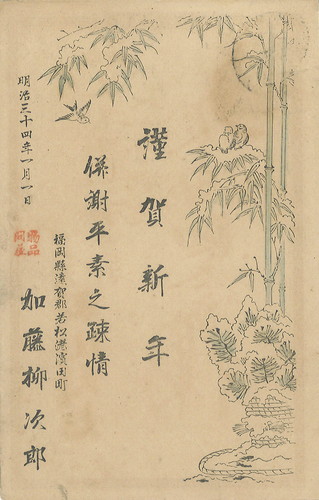 謹賀新年
併謝平素之疎情
明治三十四年一月一日
福岡縣遠賀郡若松港濱田町
加藤柳次郎